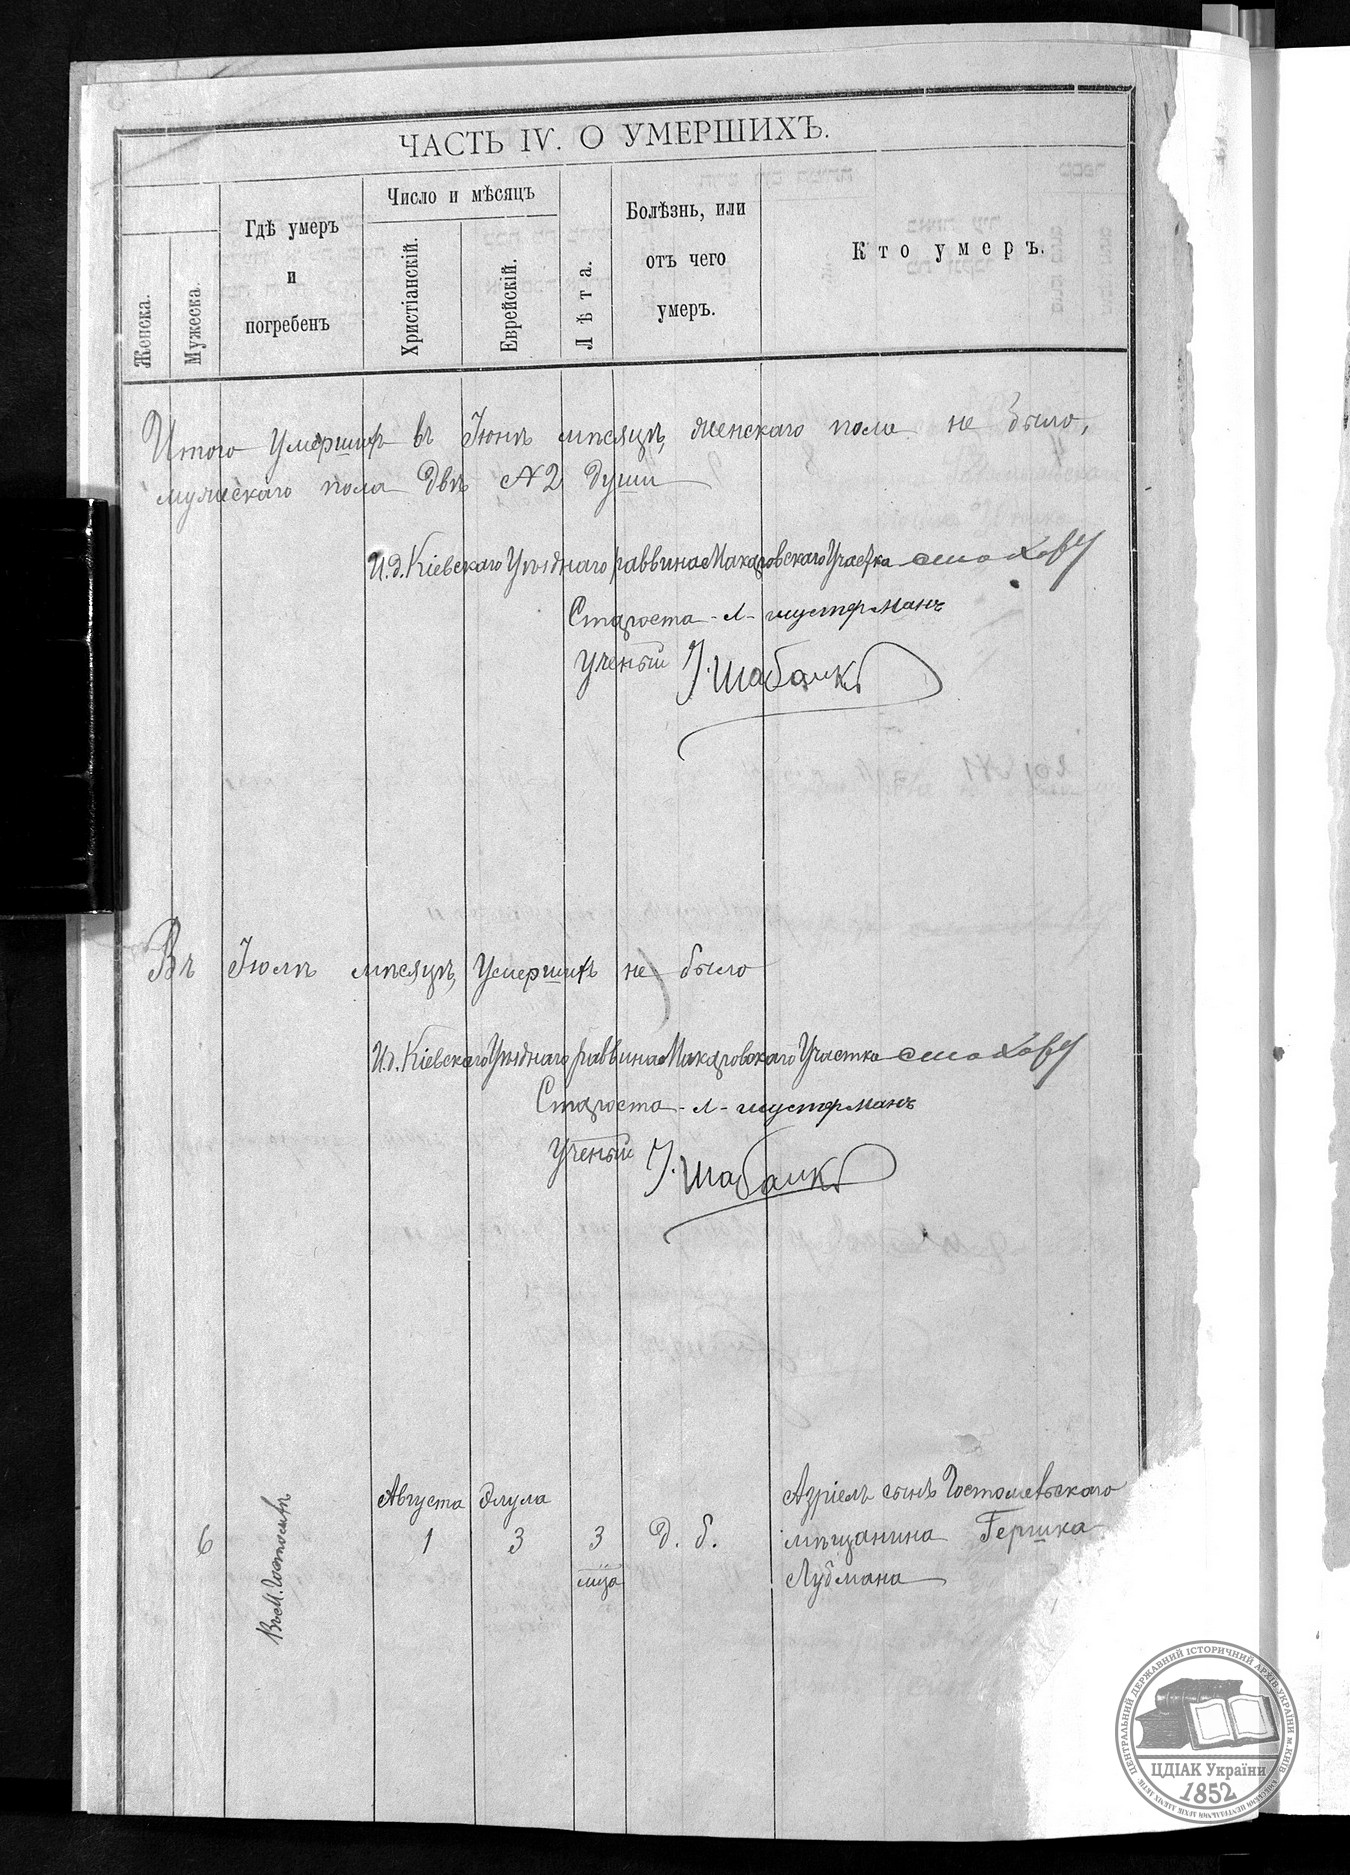 ЧАСТЬ IV. О УМЕРШИХЪ.
Женска.
Мужеска.
Гдѣ умеръ
и
погребенъ
Число и мѣсяцъ
Христіанскій.
Еврейскій.
Лѣта.
Болѣзнь, или
отъ чего
умеръ.
Кто умеръ.
Итого Умершихъ въ Іюнѣ мѣсяцѣ, женскаго пола не было,
мужескаго пола двѣ №2 души
И.д. Кіевскаго Уѣзднаго раввина Макаровскаго Участка
Староста -Л- Шустерманъ
Ученый
Въ Іюлѣ мѣсяцѣ, Умершихъ не было
И.д. Кіевскаго Уѣзднаго раввина Макаровскаго Участка
Староста -Л- Шустерманъ
Ученый
Августа Элула
6 Въ М. Гостомлѣ 1 3 3 Д. б.
м-ца
Азріель сынъ Гостомельскаго
мѣщанина Гершка
Лубмана
ЦЕНТРАЛЬНИЙ ДЕРЖАВНИЙ ІСТОРИЧНИЙ АРХІВ УКРАЇНИ м. КИЇВ
ЦДІАК України
1852